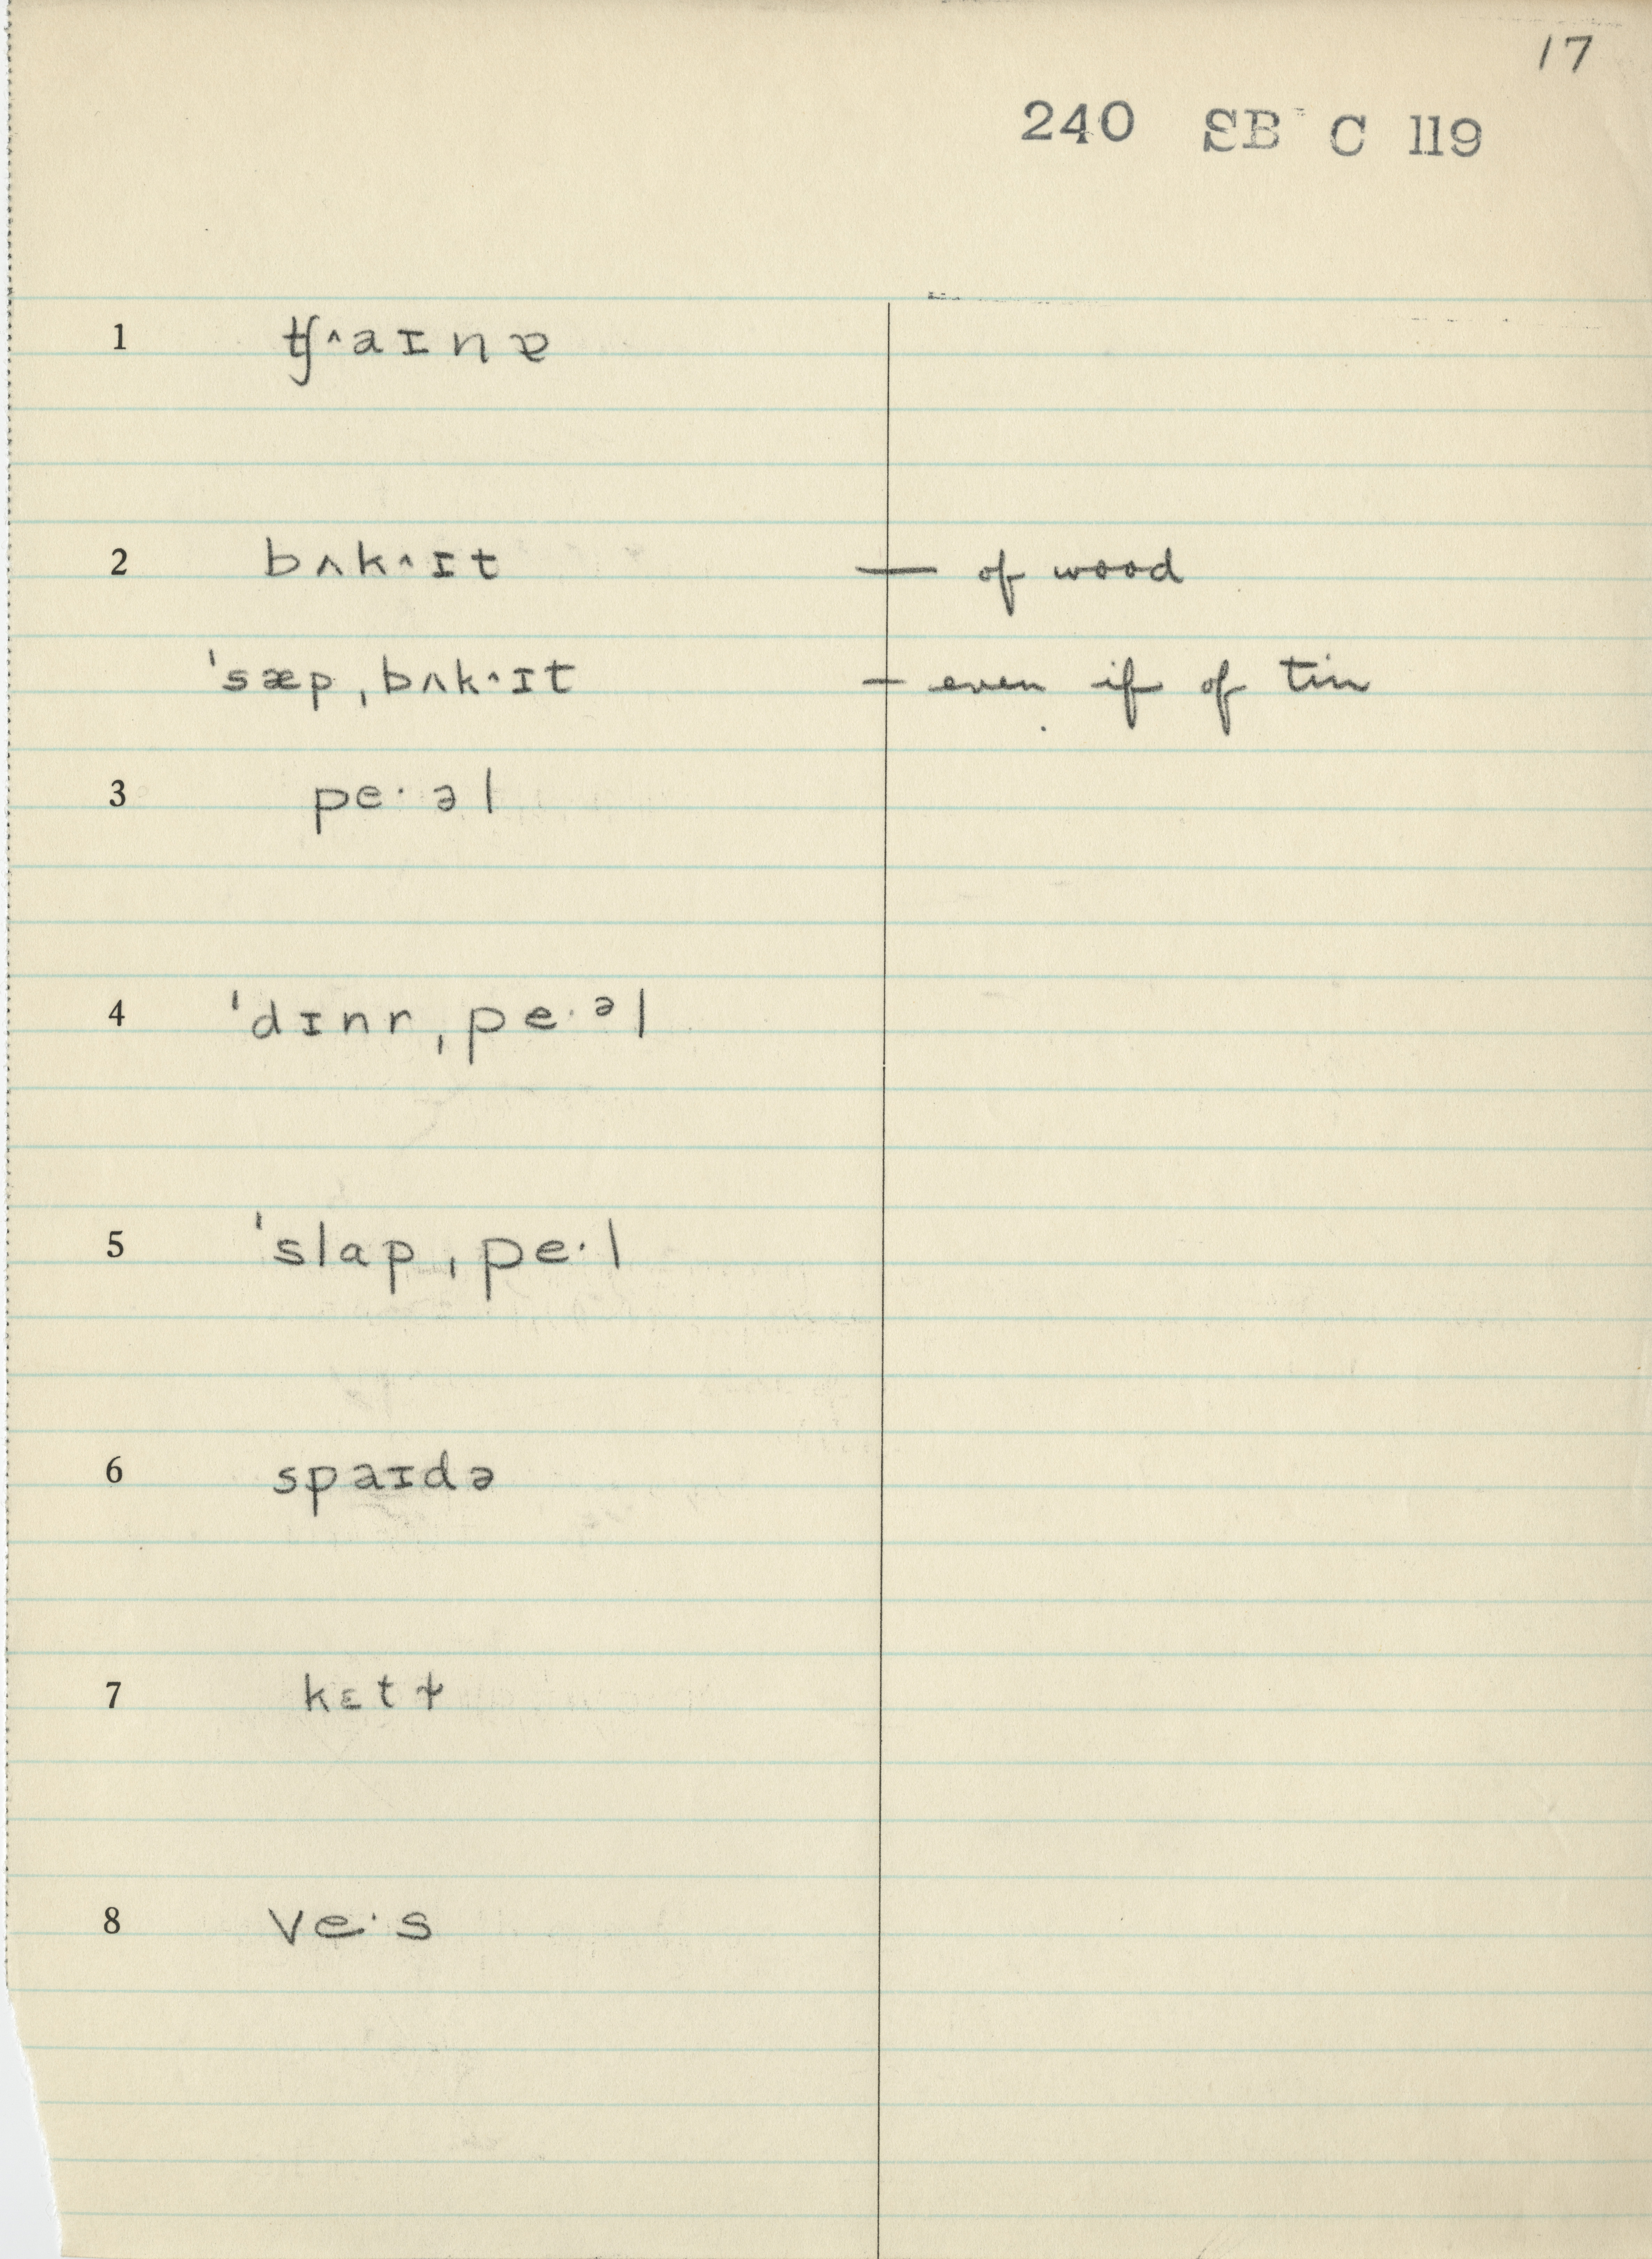 17
240 SB C 119
1 ʧ^aɪnɐ
2 bʌk^ɪt — of wood
ˈsæpˌbʌk^ɪt — even if of tin
3 pe·əl
4 ˈdɪnrˌpe·ᵊl
5 ˈslapˌpe·l
6 spaɪdə
7 kɛtɫ
8 ve·s